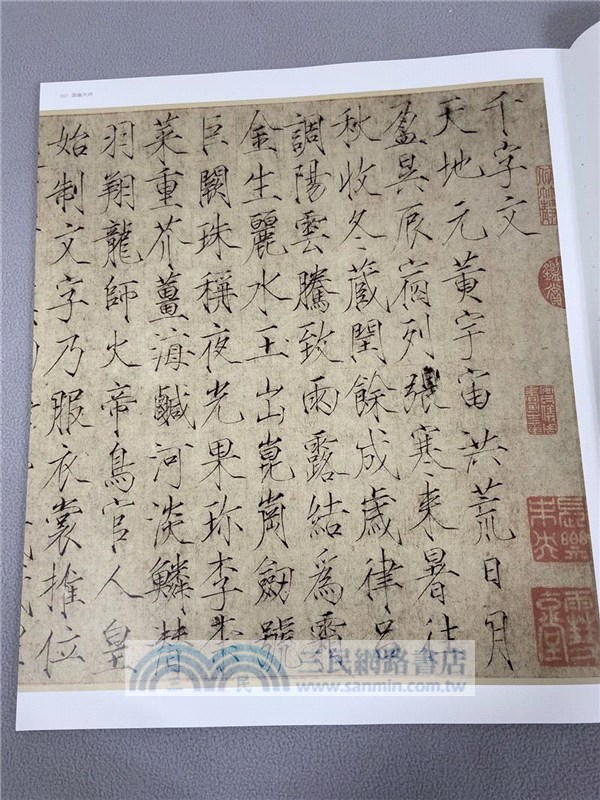 千字文
天地元黃宇宙洪荒日月
盈昃辰宿列張寒来暑往
秋收冬蔵閏餘成歲律呂
調陽雲騰致雨露結爲霜
金生麗水玉出崑崗劒號
巨闕珠稱夜光果珎李柰
菜重芥薑海鹹河淡鱗潛
羽翔龍師火帝鳥官人皇
始制文字乃服衣裳推位
三民
三民網路書店
www.sanmin.com.tw